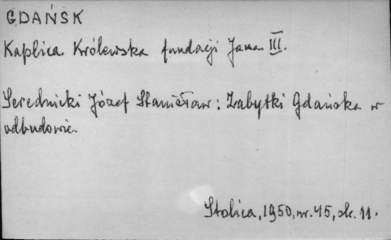 GDAŃSK
Kaplica Królewska fundacji Jana III.
Serednicki Józef Stanisław: Zabytki Gdańska w
odbudowie.
Stolica, 1950, nr. 45, str. 11.